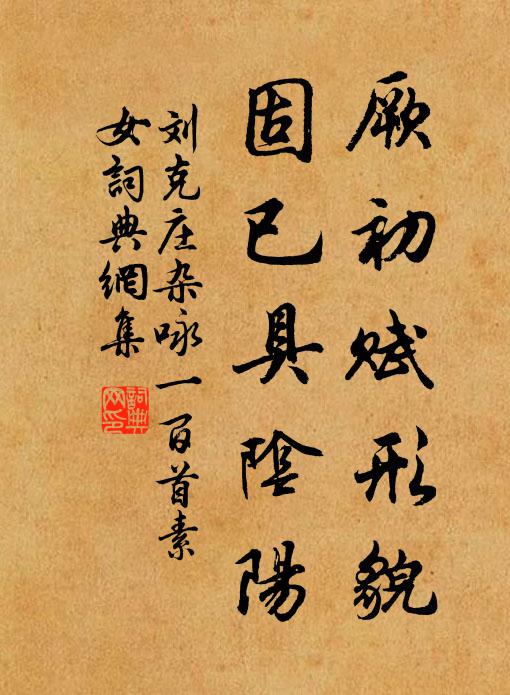 厥初赋形貌
固已具陰陽
刘克庄杂咏一百首素
女詞典網集
詞典网印